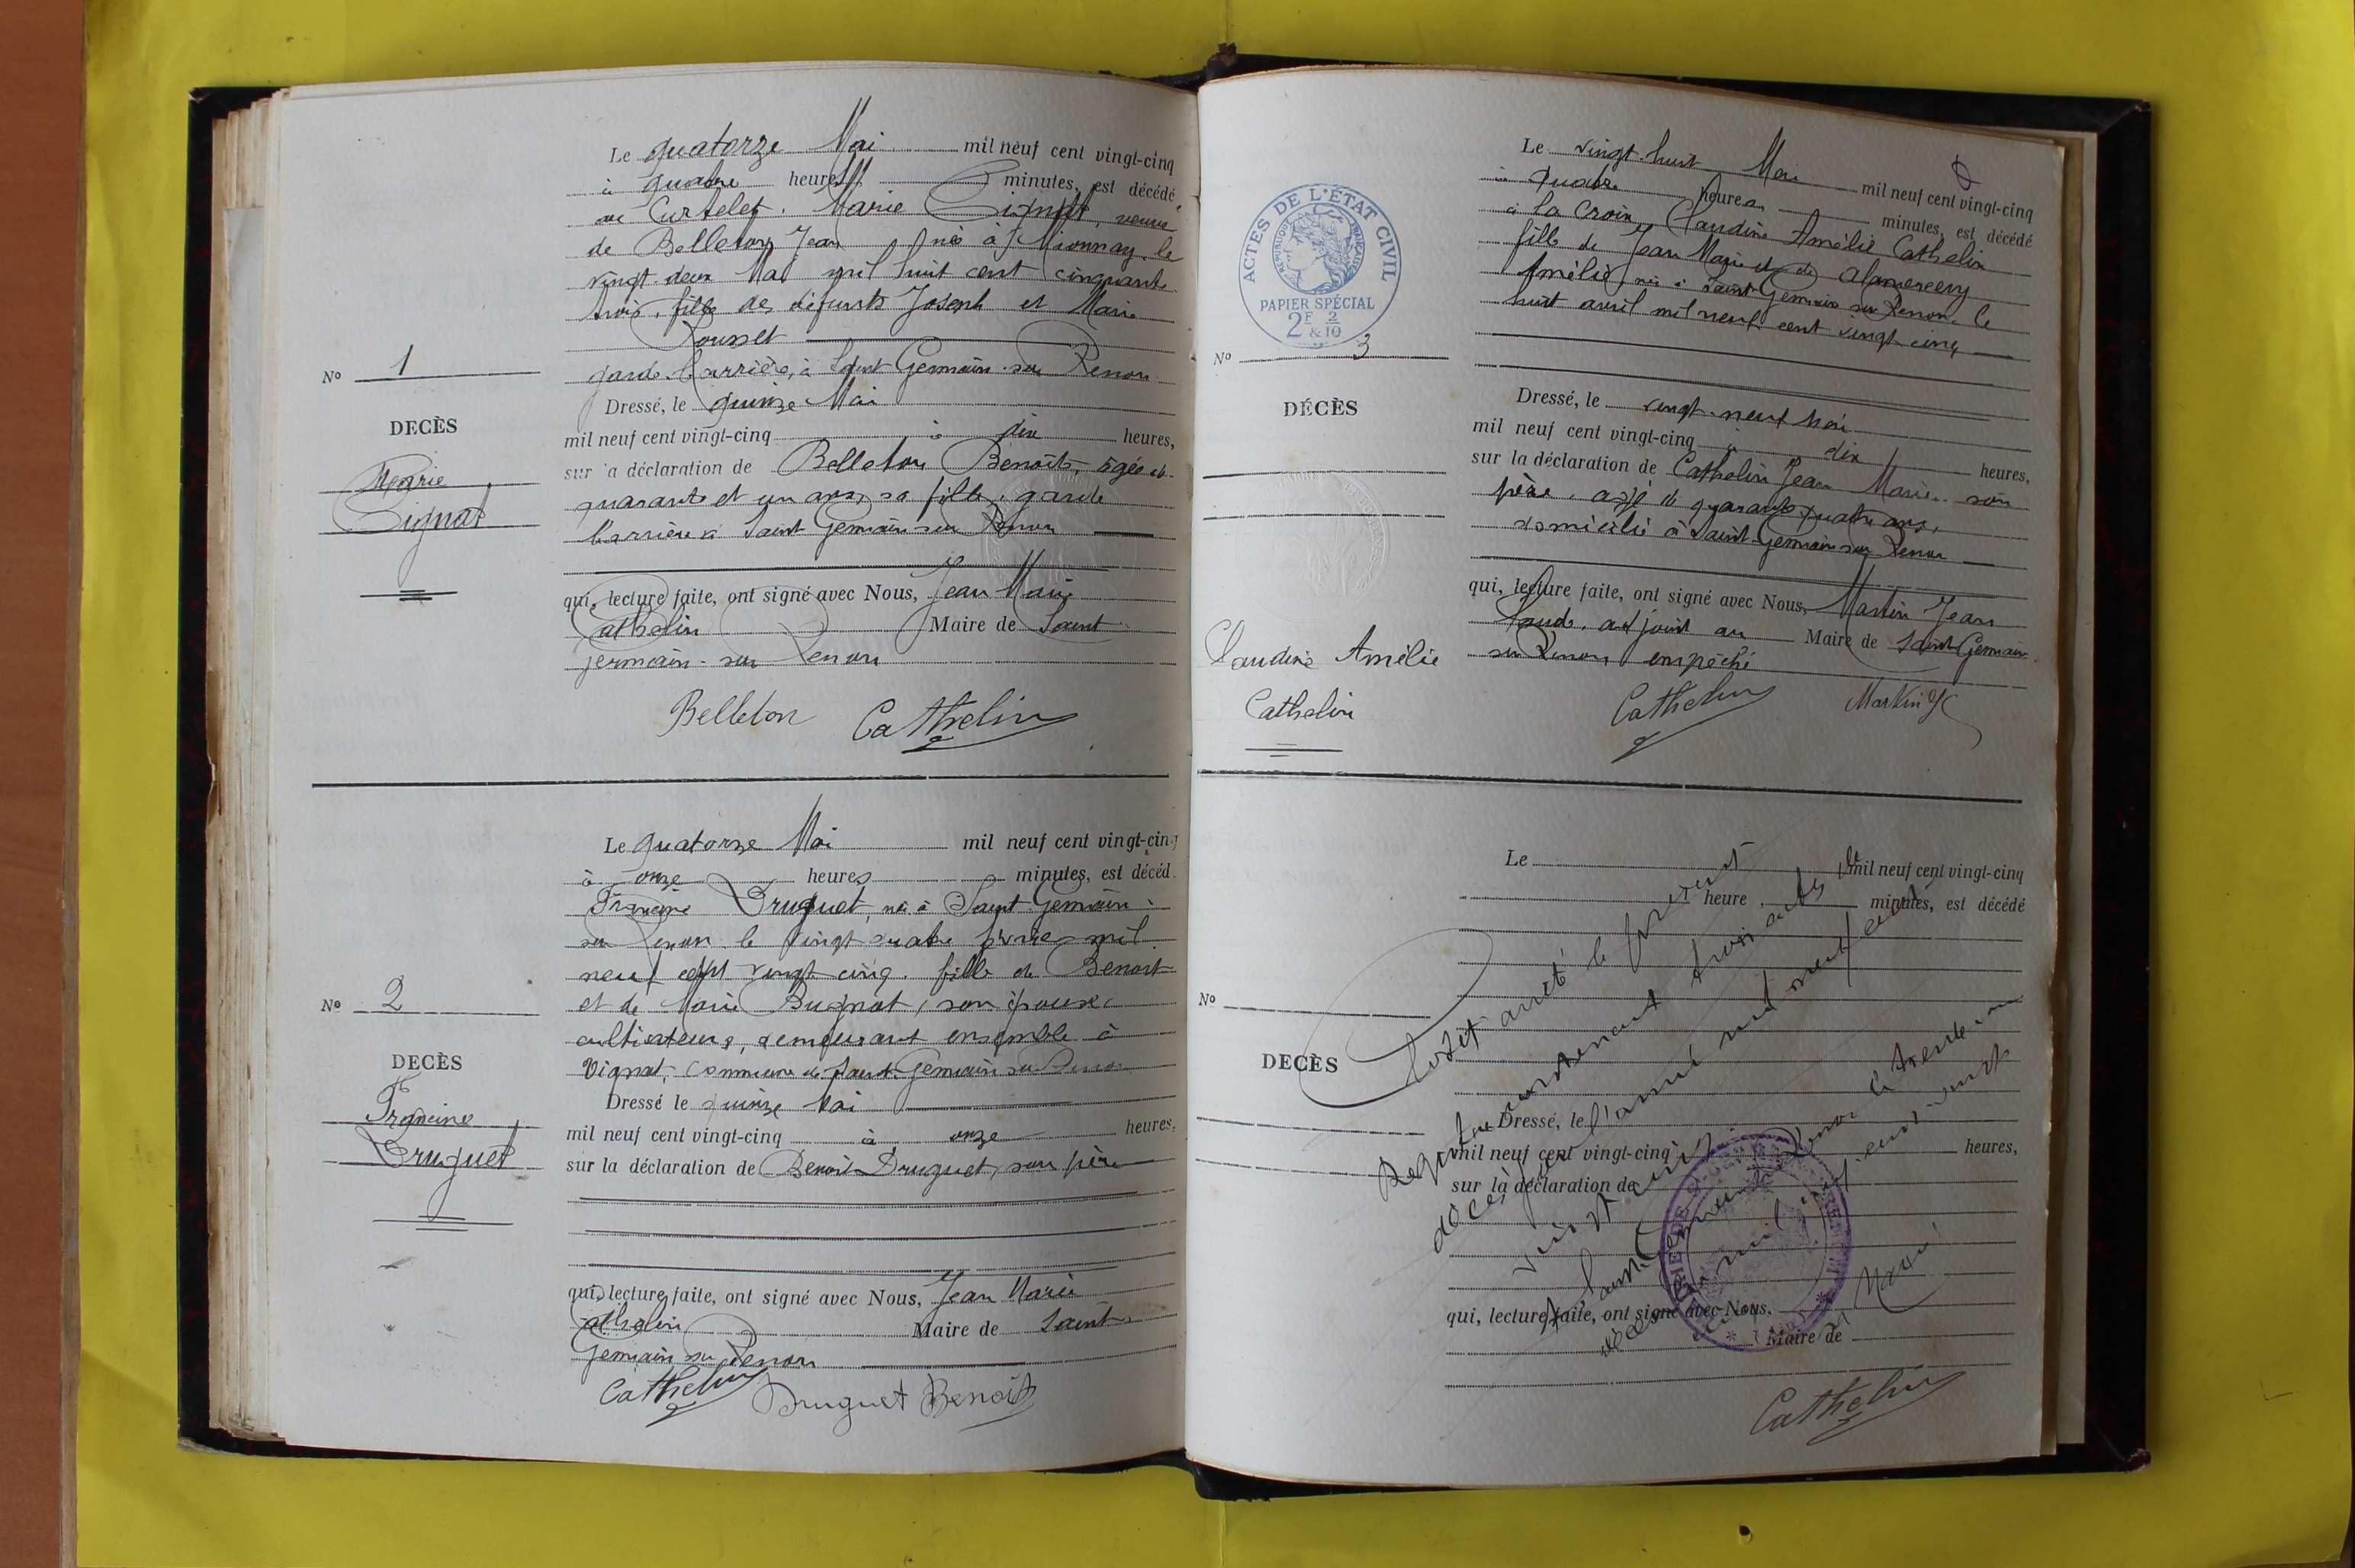 Le quatorze Mai mil neuf cent vingt-cinq
à quatre heures minutes, est décédé
au Curtelet. Marie Signat, veuve
de Belleton Jean née à Mionnay le
vingt-deux Mai mil huit cent cinquante
trois, fille des défunts Joseph et Marie
Rousset
garde barrière, à Saint Germain-sur Renon
No 1
DECÈS
Marie
Signat
Dressé, le quinze Mai
mil neuf cent vingt-cinq à dix heures,
sur la déclaration de Belleton Benoîte, âgée de
quarante et un ans, sa fille, garde
barrière à Saint Germain sur Renon
qui, lecture faite, ont signé avec Nous, Jean Marie
Cathelin Maire de Saint
germain-sur Renon
Belleton Cathelin
Le quatorze Mai mil neuf cent vingt-cinq
à onze heures minutes, est décéd
Francine Druguet, née à Saint Germain-
sur Renon le vingt quatre février mil
neuf cent vingt cinq. fille de Benoit
et de Marie Bugnat, son épouse,
cultivateurs, demeurant ensemble à
Vignat, commune de Saint Germain sur Renon
No 2
DECÈS
Francine
Druguet
Dressé le quinze Mai
mil neuf cent vingt-cinq à onze heures,
sur la déclaration de Benoit Druguet, son père
qui, lecture faite, ont signé avec Nous, Jean Marie
Cathelin Maire de Saint
Germain sur Renon
Cathelin Druguet Benoit
ACTES DE L'ÉTAT CIVIL
RÉPUBLIQUE FRANÇAISE
PAPIER SPÉCIAL
2F 2/10
&
Le vingt-huit Mai mil neuf cent vingt-cinq
à quatre heures minutes, est décédé
à la Croix, Claudine Amélie Cathelin
fille de Jean Marie et de
Amélie, née à Saint-Germain sur Renon, le
huit avril mil neuf cent vingt cinq
No 3
DÉCÈS
Claudine Amélie
Cathelin
Dressé, le vingt-neuf Mai
mil neuf cent vingt-cinq à dix heures,
sur la déclaration de Cathelin Jean Marie son
père, agé de quarante quatre ans,
domicilié à Saint-Germain sur Renon
qui, lecture faite, ont signé avec Nous, Martin Jean
Claude, adjoint au Maire de Saint Germain
sur Renon empêché
Cathelin Martin JC
Le mil neuf cent vingt-cinq
heure minutes, est décédé
No
DECÈS
Dressé, le
mil neuf cent vingt-cinq heures,
sur la déclaration de
qui, lecture faite, ont signé avec Nous,
Maire de
Clos et arrêté le présent
Registre contenant trois actes de
décès pour l'année mil neuf cent
vingt cinq.
A Saint Germain sur Renon le trente un
décembre mil neuf cent vingt
cinq
Le Maire
Cathelin